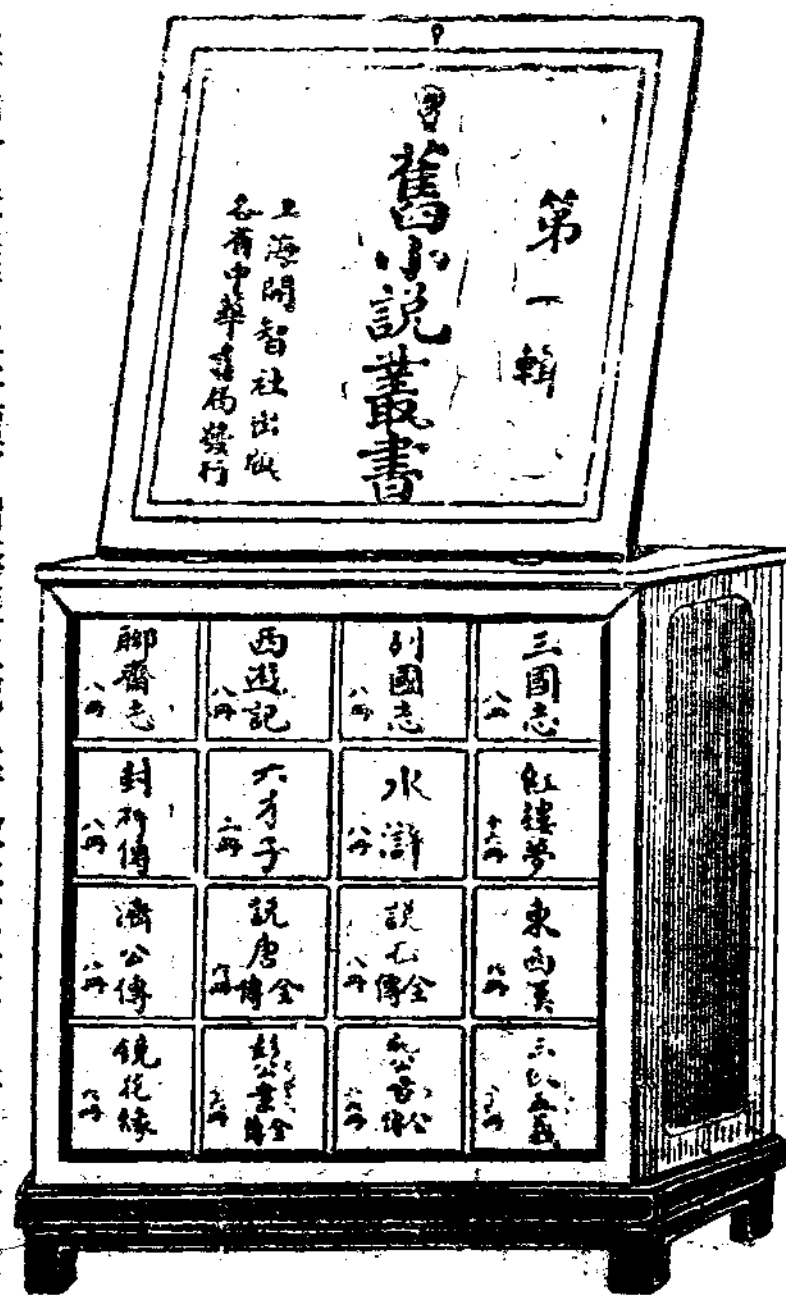 第一輯
舊小說叢書
上海開智社出版
各省中華書局發行
三國志
八冊
列國志
八冊
西遊記
八冊
聊齋志
八冊
紅樓夢
十六冊
水滸
八冊
六才子
六冊
封神傳
八冊
東西漢
八冊
說岳全傳
八冊
說唐全傳
濟公傳
八冊
三俠五義
施公案全傳
彭公案全傳
鏡花緣
六冊